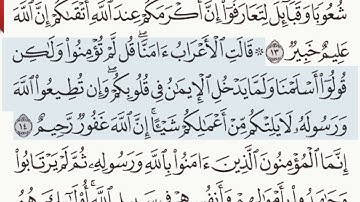 شُعُوبًا وَقَبَآئِلَ لِتَعَارَفُوٓا۟ إِنَّ أَكْرَمَكُمْ عِندَ ٱللَّهِ أَتْقَىٰكُمْ إِنَّ ٱللَّهَ
عَلِيمٌ خَبِيرٌ ١٣ ۞ قَالَتِ ٱلْأَعْرَابُ ءَامَنَّا ۖ قُل لَّمْ تُؤْمِنُوا۟ وَلَٰكِن
قُولُوٓا۟ أَسْلَمْنَا وَلَمَّا يَدْخُلِ ٱلْإِيمَٰنُ فِى قُلُوبِكُمْ ۖ وَإِن تُطِيعُوا۟ ٱللَّهَ
وَرَسُولَهُۥ لَا يَلِتْكُم مِّنْ أَعْمَٰلِكُمْ شَيْـًٔا ۚ إِنَّ ٱللَّهَ غَفُورٌ رَّحِيمٌ ١٤
إِنَّمَا ٱلْمُؤْمِنُونَ ٱلَّذِينَ ءَامَنُوا۟ بِٱللَّهِ وَرَسُولِهِۦ ثُمَّ لَمْ يَرْتَابُوا۟